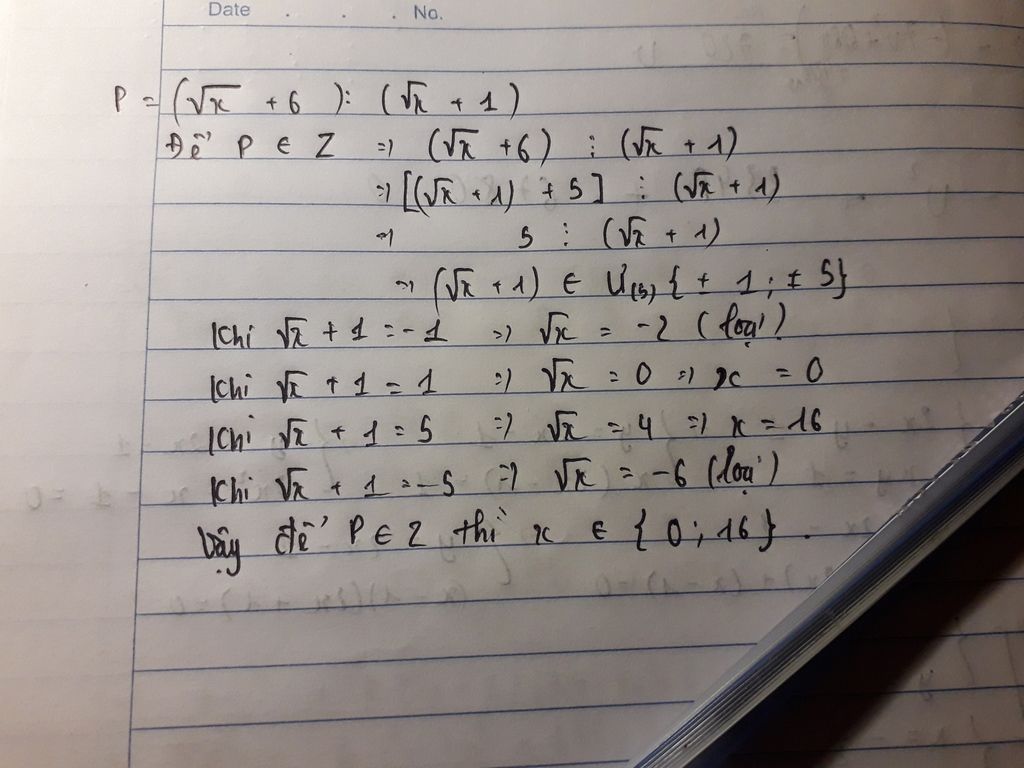 Date . . . No.
P = (√x + 6) : (√x + 1)
Để P ∈ Z => (√x + 6) ⋮ (√x + 1)
=> [(√x + 1) + 5] ⋮ (√x + 1)
=> 5 ⋮ (√x + 1)
=> (√x + 1) ∈ Ư(5) { ± 1 ; ± 5}
Khi √x + 1 = -1 => √x = -2 (loại)
Khi √x + 1 = 1 => √x = 0 => x = 0
Khi √x + 1 = 5 => √x = 4 => x = 16
Khi √x + 1 = -5 => √x = -6 (loại)
Vậy để P ∈ Z thì x ∈ { 0 ; 16} .